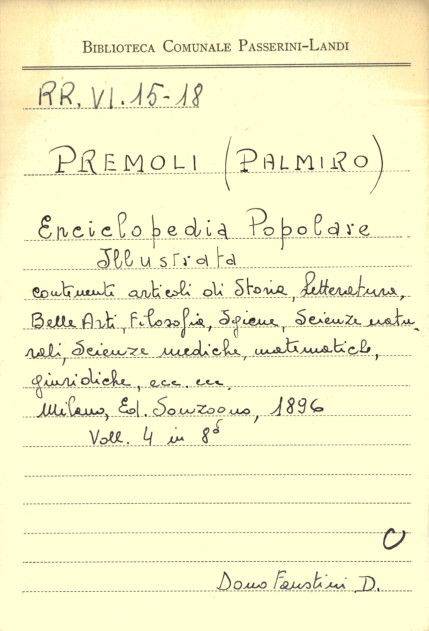 BIBLIOTECA COMUNALE PASSERINI-LANDI
RR. VI. 15-18
PREMOLI (PALMIRO)
Enciclopedia Popolare
Illustrata
contenente articoli di Storia, Letteratura,
Belle Arti, Filosofia, Igiene, Scienze natu-
rali, Scienze mediche, matematiche,
giuridiche, ecc. ecc.
Milano, Ed. Sonzogno, 1896
Voll. 4 in 8°
C
Dono Faustini D.